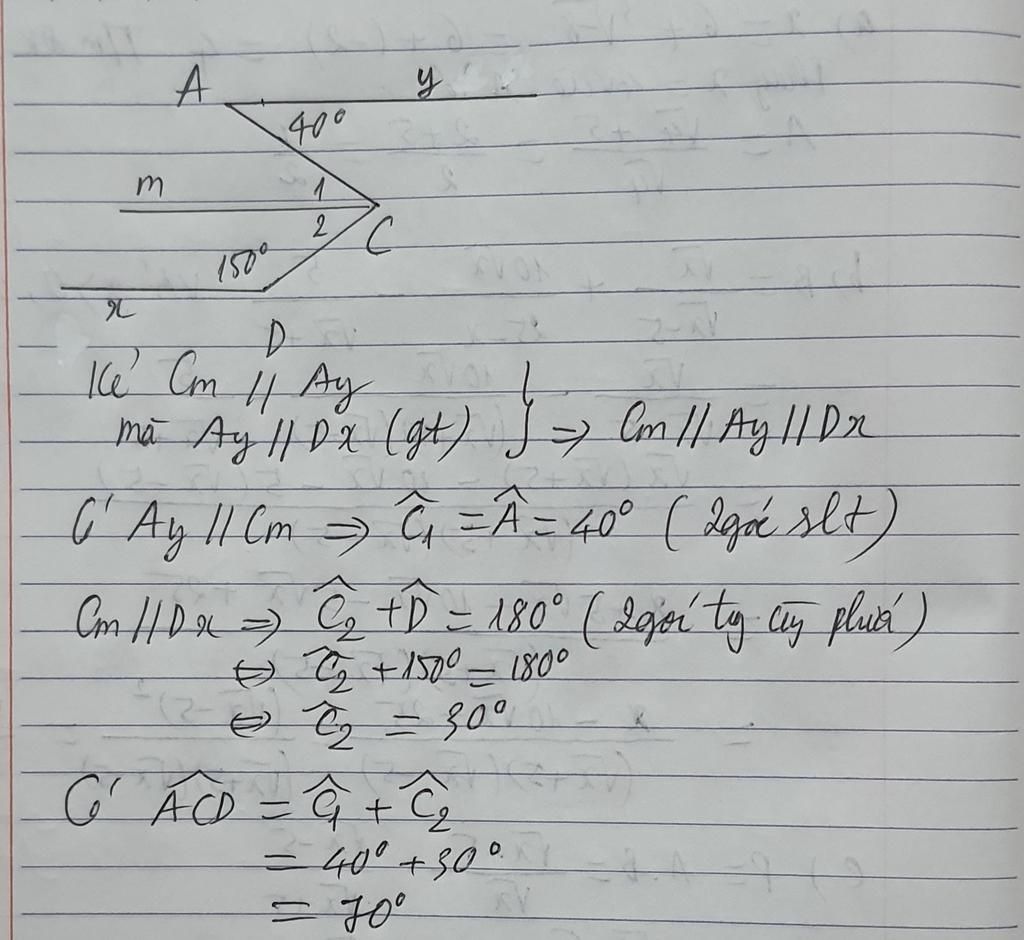 A y
40°
m 1
2 C
150°
x
D
Kẻ Cm // Ay
mà Ay // Dx (gt) } => Cm // Ay // Dx
Có Ay // Cm => Ĉ₁ = Â = 40° (2 góc slt)
Cm // Dx => Ĉ₂ + D̂ = 180° (2 góc
<=> Ĉ₂ + 150° = 180°
<=> Ĉ₂ = 30°
Có ACD̂ = Ĉ₁ + Ĉ₂
= 40° + 30°
= 70°